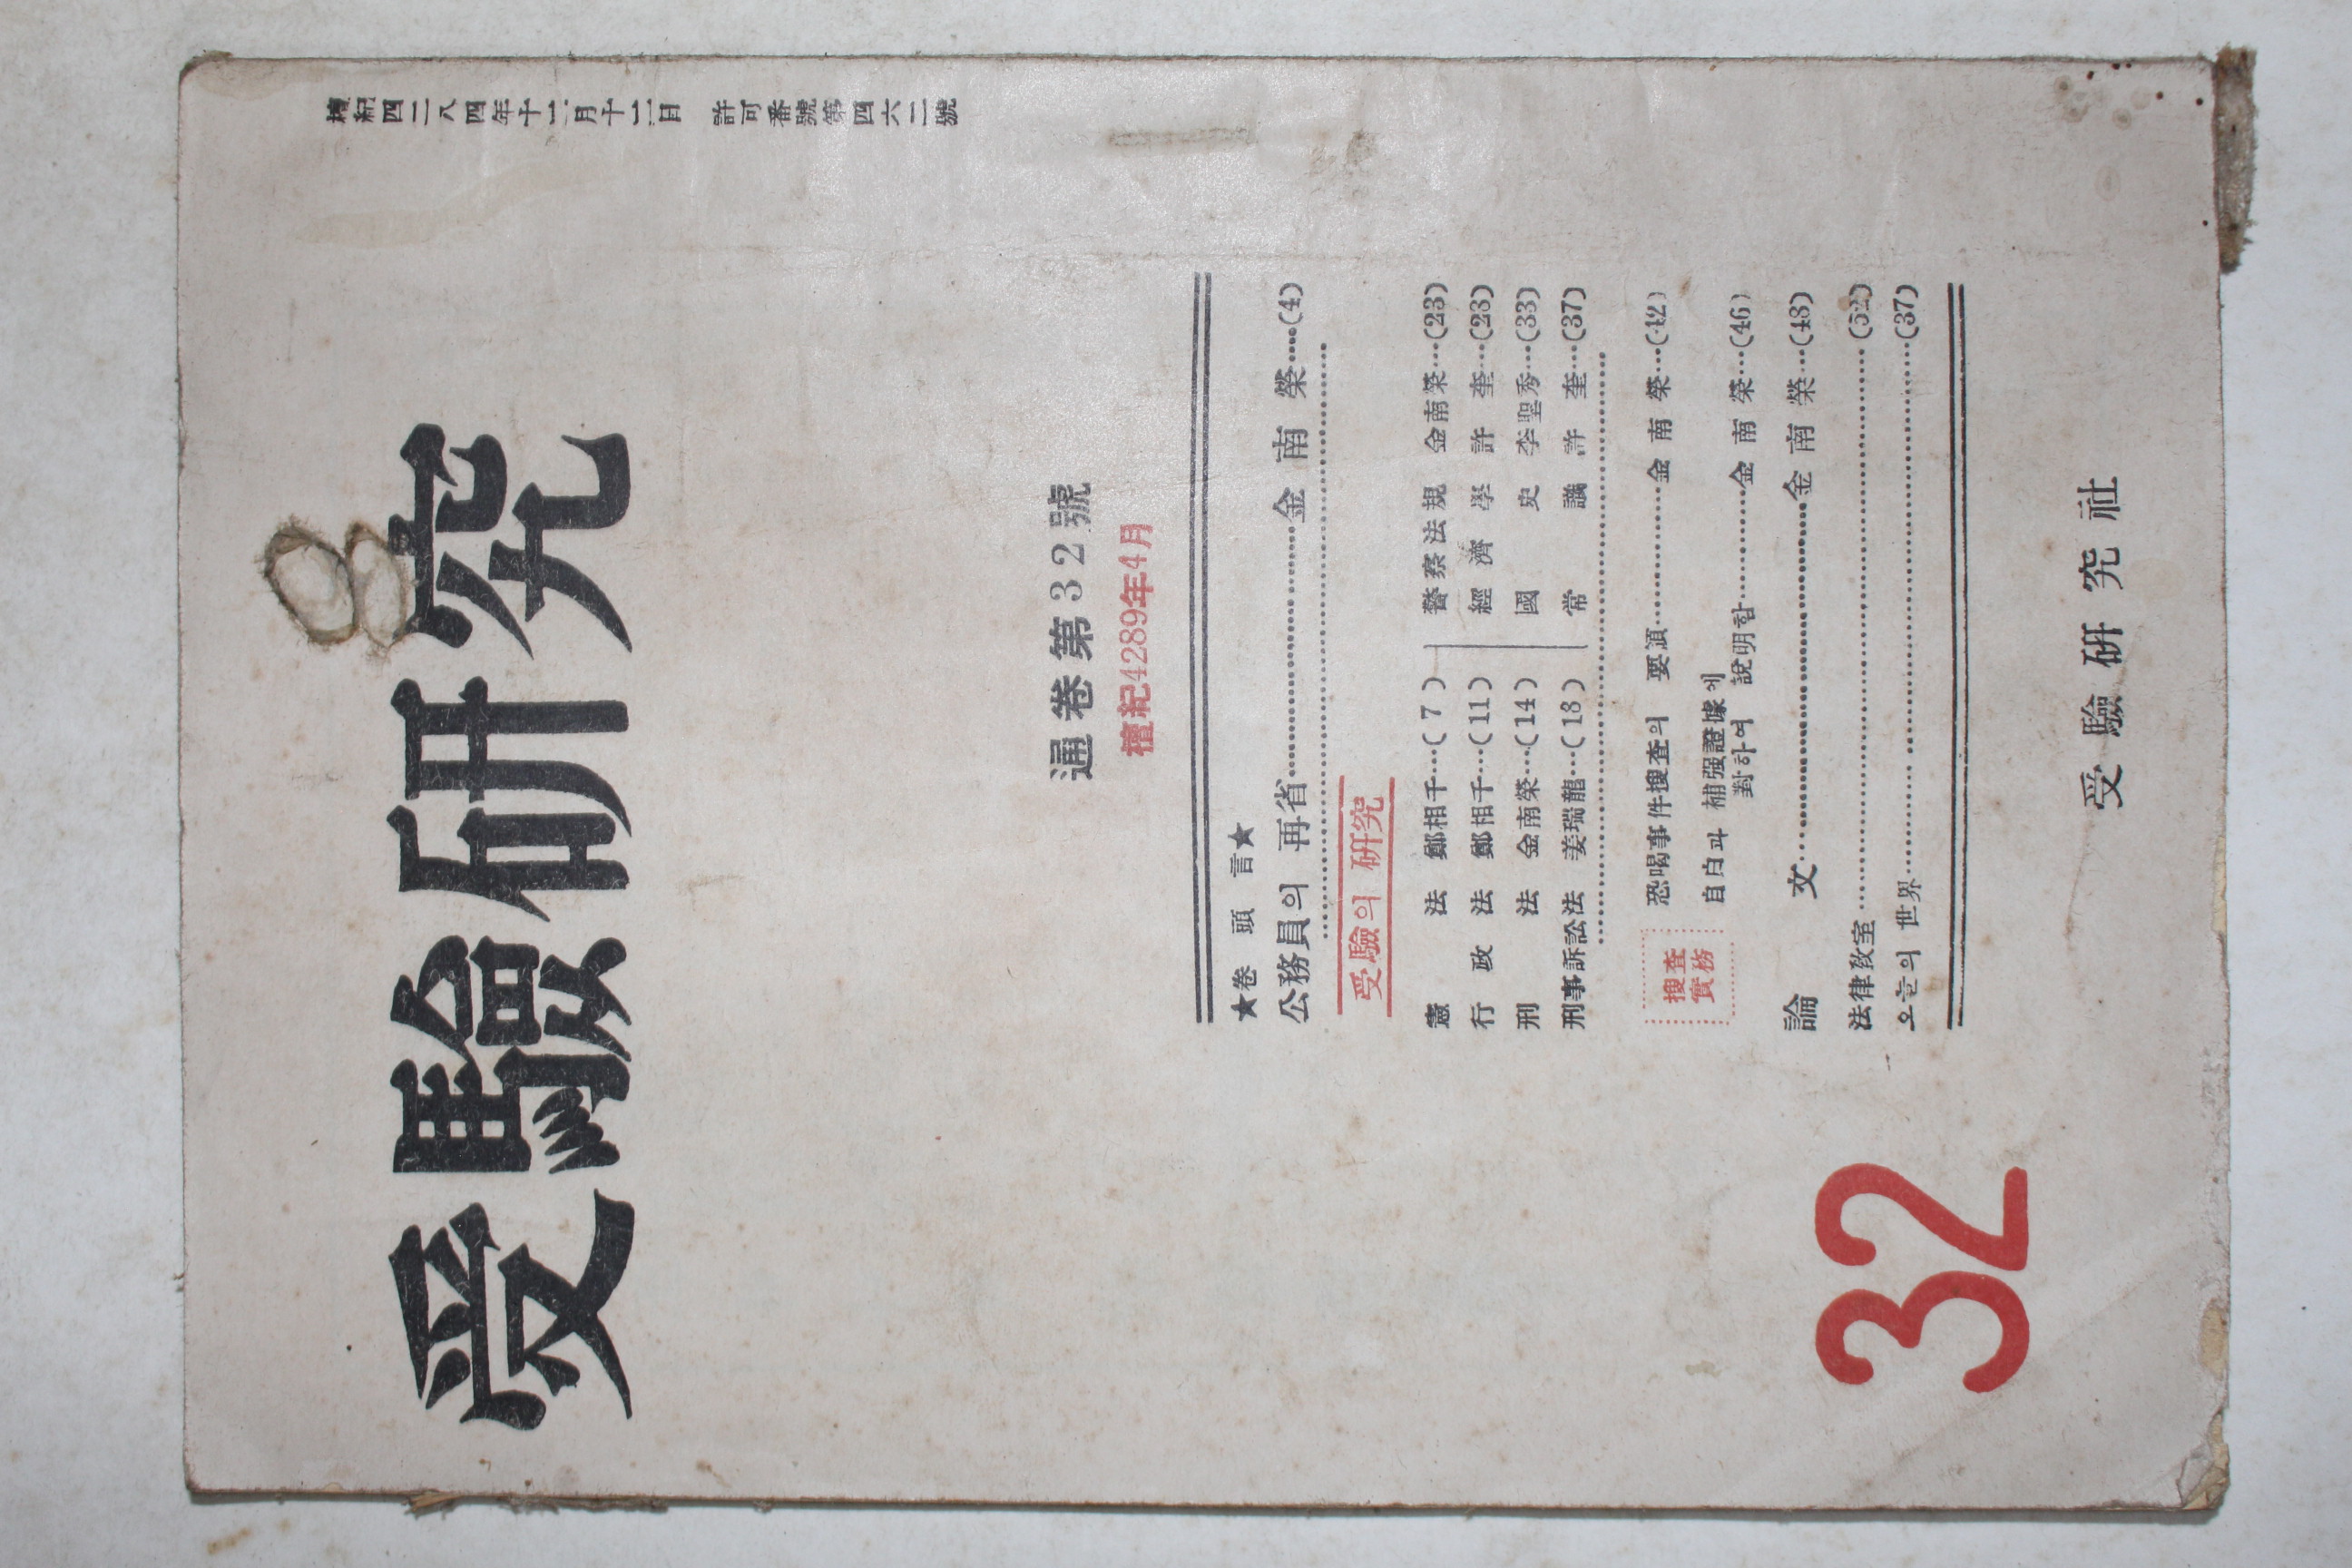 檀紀四二八四年十二月十二日 許可番號第四六二號
受驗研究
通卷第32號
檀紀4289年4月
★卷頭言★
公務員의 再省……金南榮…(4)
受驗의 研究
憲法 鄭相千…(7)
行政法 鄭相千…(11)
刑法 金南榮…(14)
刑事訴訟法 姜瑞龍…(18)
警察法規 金南榮…(23)
經濟學 許奎…(23)
國史 李聖秀…(33)
常識 許奎…(37)
搜査
實務
恐喝事件搜査의 要領……金南榮…(42)
自白과 補强證據에
對하여 說明함……金南榮…(46)
論文……金南榮…(48)
法律敎室……(52)
오늘의 世界……(37)
32
受驗研究社